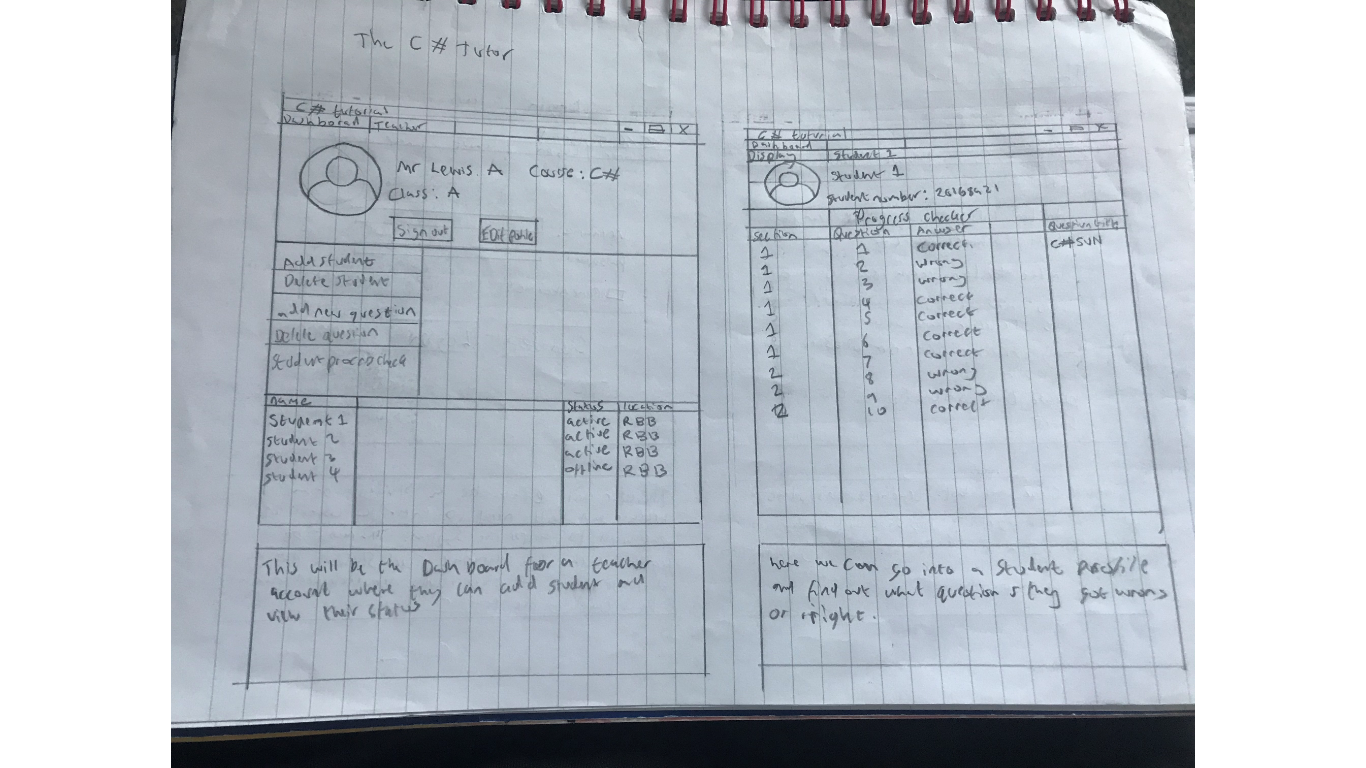 The C# tutor
C# tutorial
Dashboard Teacher
- X
Mr Lewis A Course: C#
Class: A
Sign out Edit profile
Add student
Delete student
add new question
Delete question
Student check
name Status location
Student 1 active RBB
student 2 active RBB
student 3 active RBB
student 4 offline RBB
This will be the Dashboard for a teacher
account where they can add student and
view their status
C# tutorial
- X
Dashboard
Display Student 1
Student 1
Student number: 20168421
Progress checker
Section Question Answer Question title
1 1 correct C# SUN
1 2 wrong
1 3 wrong
1 4 correct
1 5 correct
1 6 correct
1 7 correct
2 8 wrong
2 9 wrong
2 10 correct
here we can go into a student profile
and find out what question s they got wrong
or right.